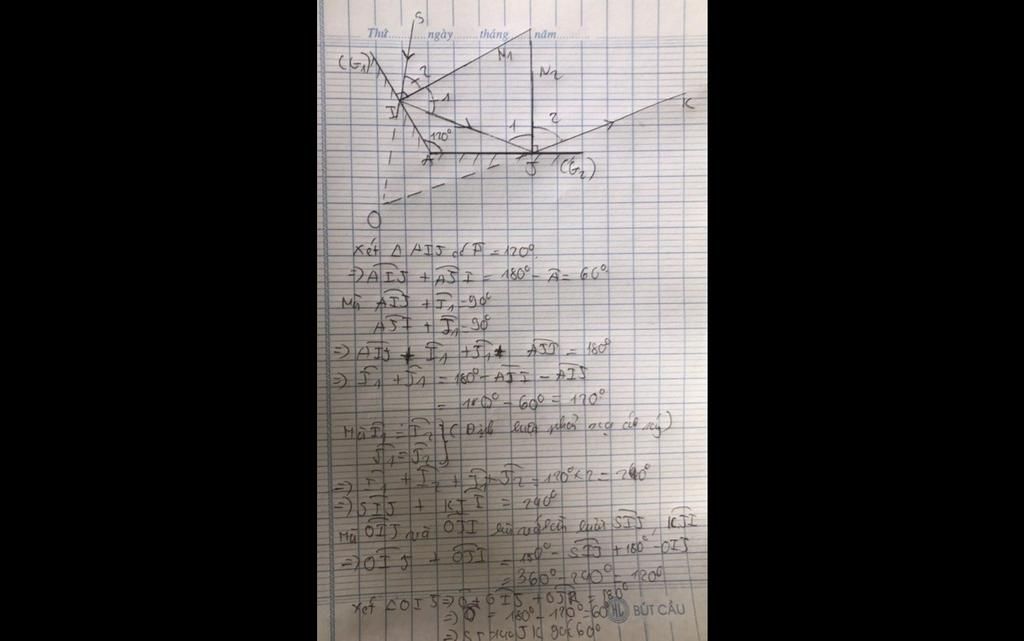 Thứ ngày tháng năm
S
(G1)
N1
N2
K
2
I
1
1
2
120°
A
J
(G2)
O
Xét Δ AIJ có A = 120°
=> AIJ + AJI = 180° - A = 60°
Mà AIJ + I1 = 90°
AJI + J1 = 90°
=> AIJ + I1 + J1 + AJI = 180°
=> I1 + J1 = 180° - AJI - AIJ
= 180° - 60° = 120°
Mà I1 = I2 } (Định luật phản xạ
J1 = J2
=> I1 + I2 + J1 + J2 = 120° x 2 = 240°
=> SIJ + KJI = 240°
Mà OIJ và OJI SIJ, KJI
=> OIJ + OJI = 180° - SIJ + 180° - OIJ
= 360° - 240° = 120°
Xét Δ OIJ => O + OIJ + OJI = 180°
=> O = 180° - 120° = 60°
=> SI JK góc 60°
HL BÚT CẦU